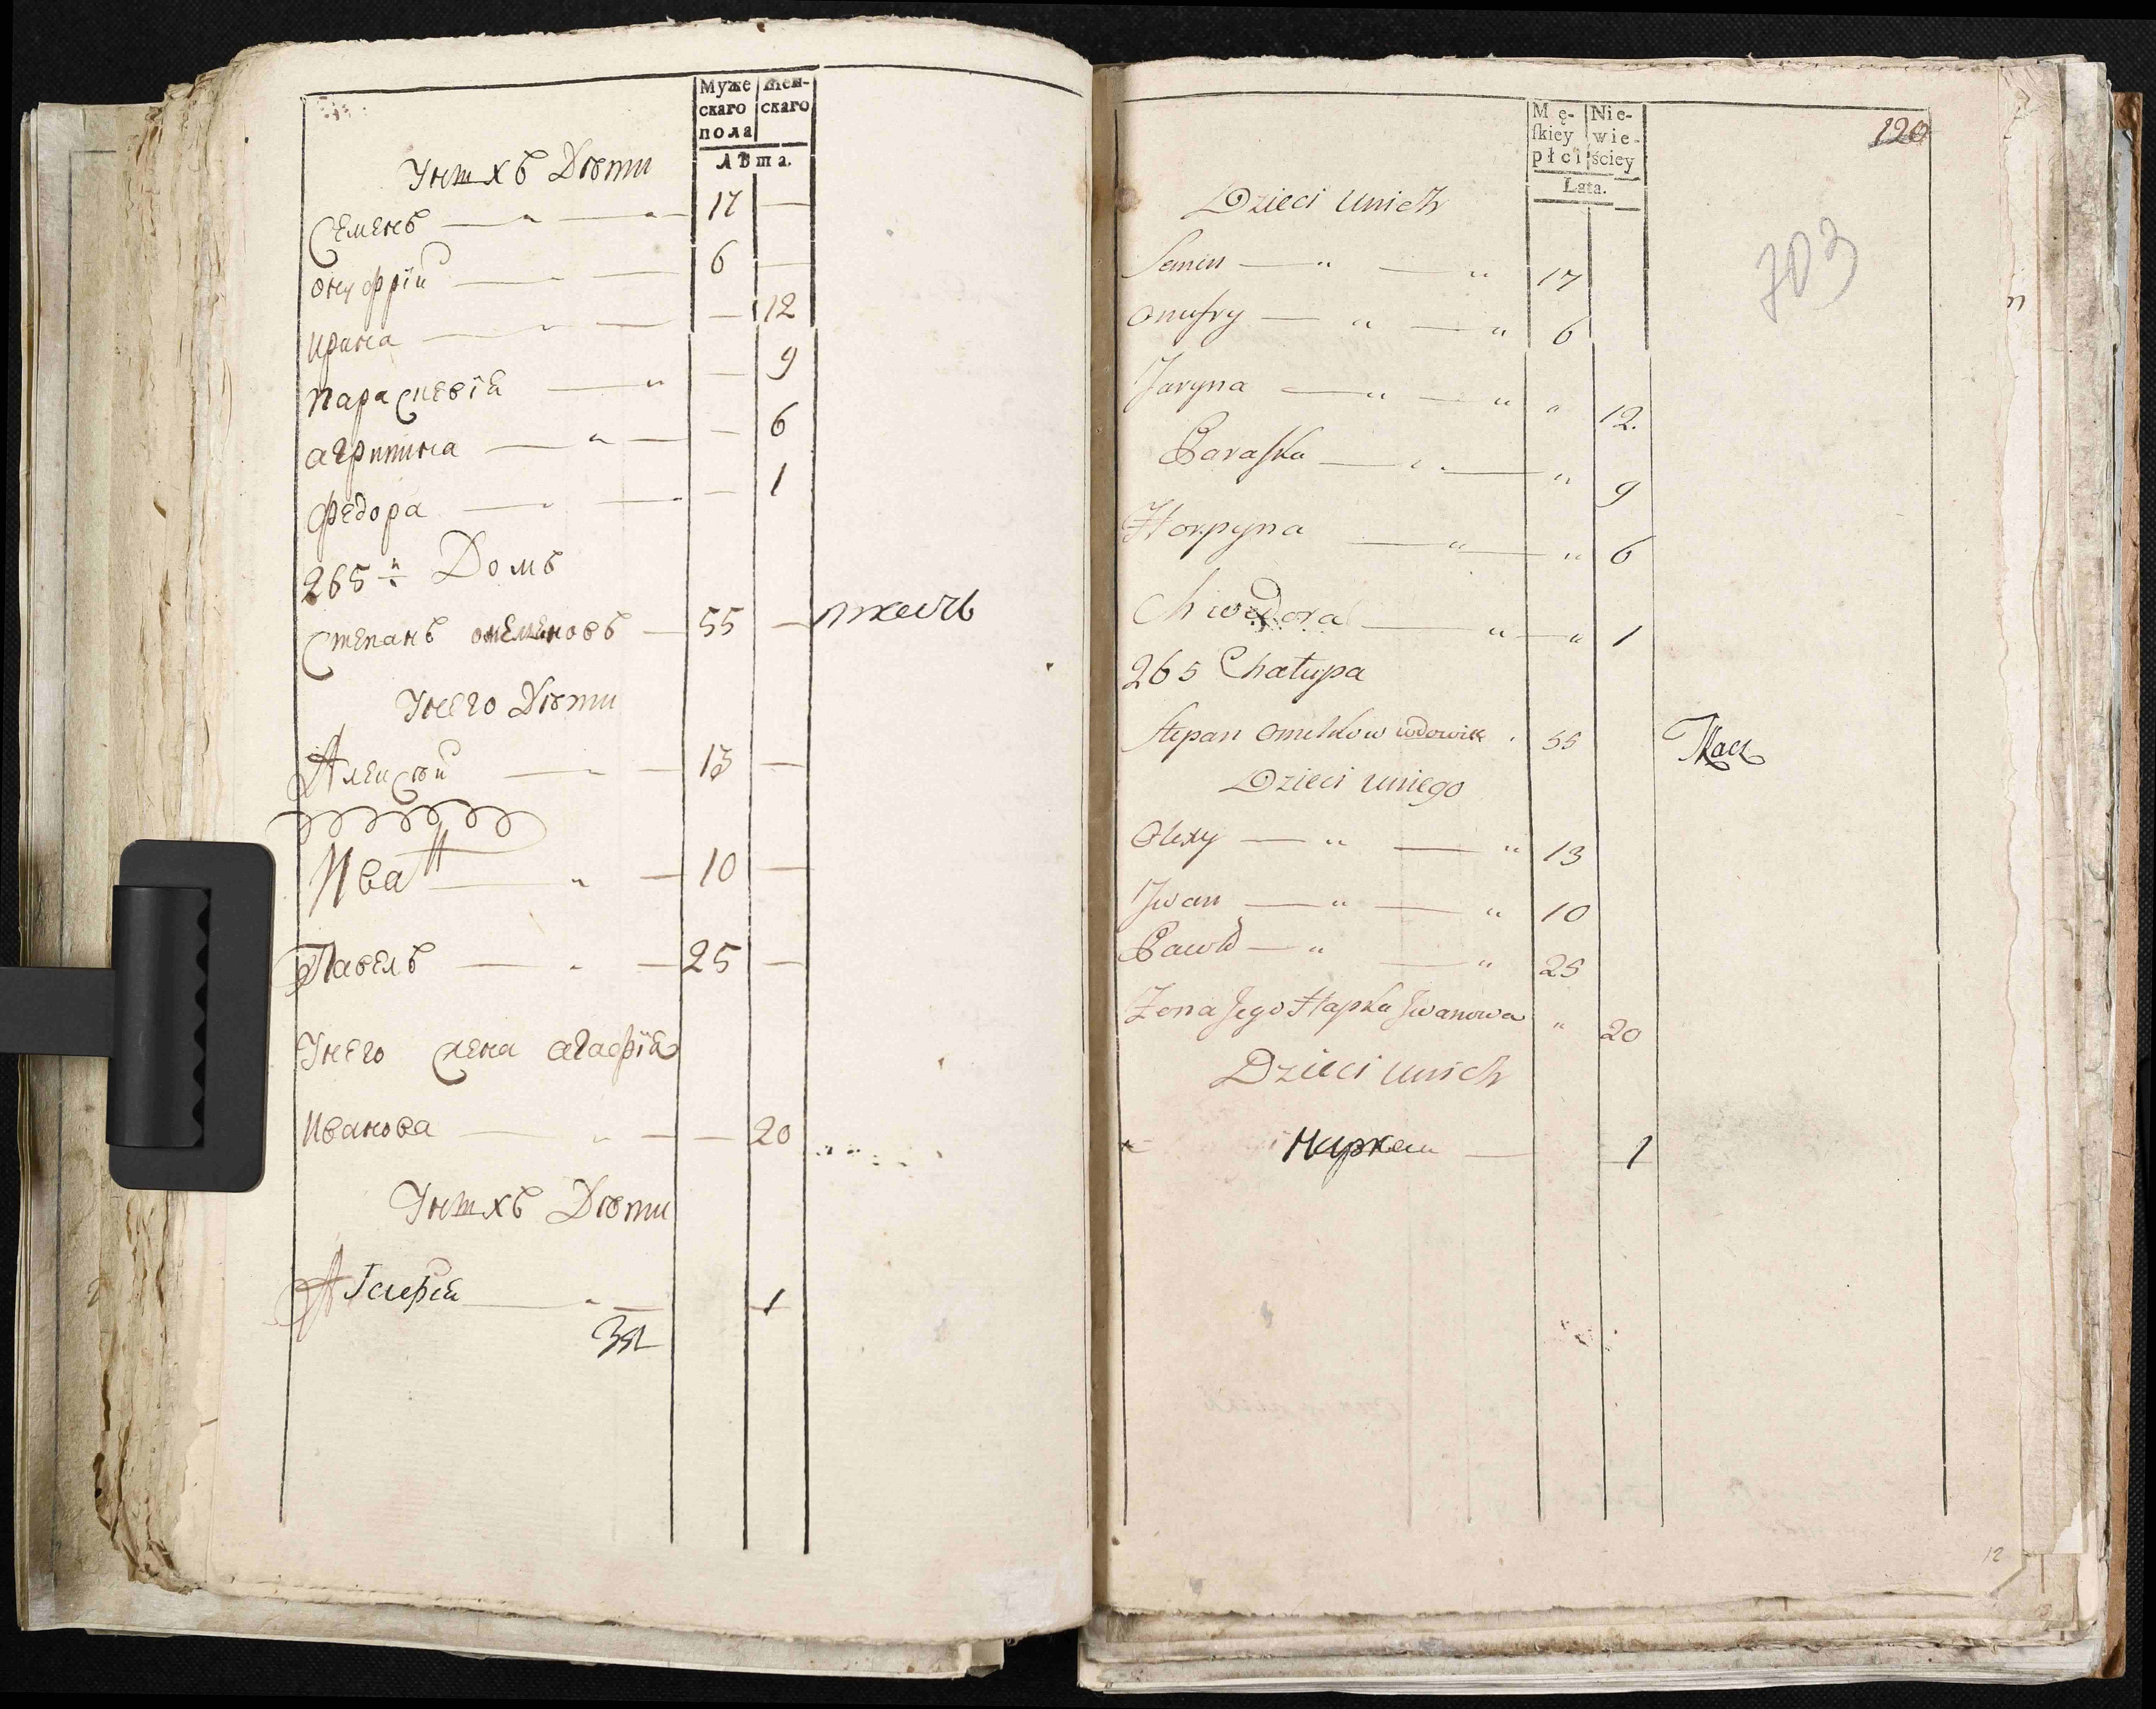 Муже
скаго
пола
Жен-
скаго
Лѣта.
Унихъ Дѣти
Семенъ 17 —
Онуфрій 6 —
Ирина — 12
Параскевія — 9
Агрипина — 6
Федора — 1
265й Домъ
Степанъ Омеляновъ 55 — ткачъ
Унего Дѣти
Алексѣй 13 —
Иванъ 10 —
Павелъ 25 —
Унего жена Агафія
Иванова — 20
Унихъ Дѣти
1
Mę-
ſkiey
płci
Nie-
wie-
ściey
Lata.
120
703
Dzieci unich
Semen 17
Onufry 6
Jaryna " 12.
Paraſka " 9
Horpyna " 6
Chwedora " 1
265 Chałupa
Stepan Omelkow wdowiec 55 Tkacz
Dzieci uniego
Olexy 13
Jwan 10
Pawło 25
Zona Jego Hapka Jwanowa " 20
Dzieci unich
1
12